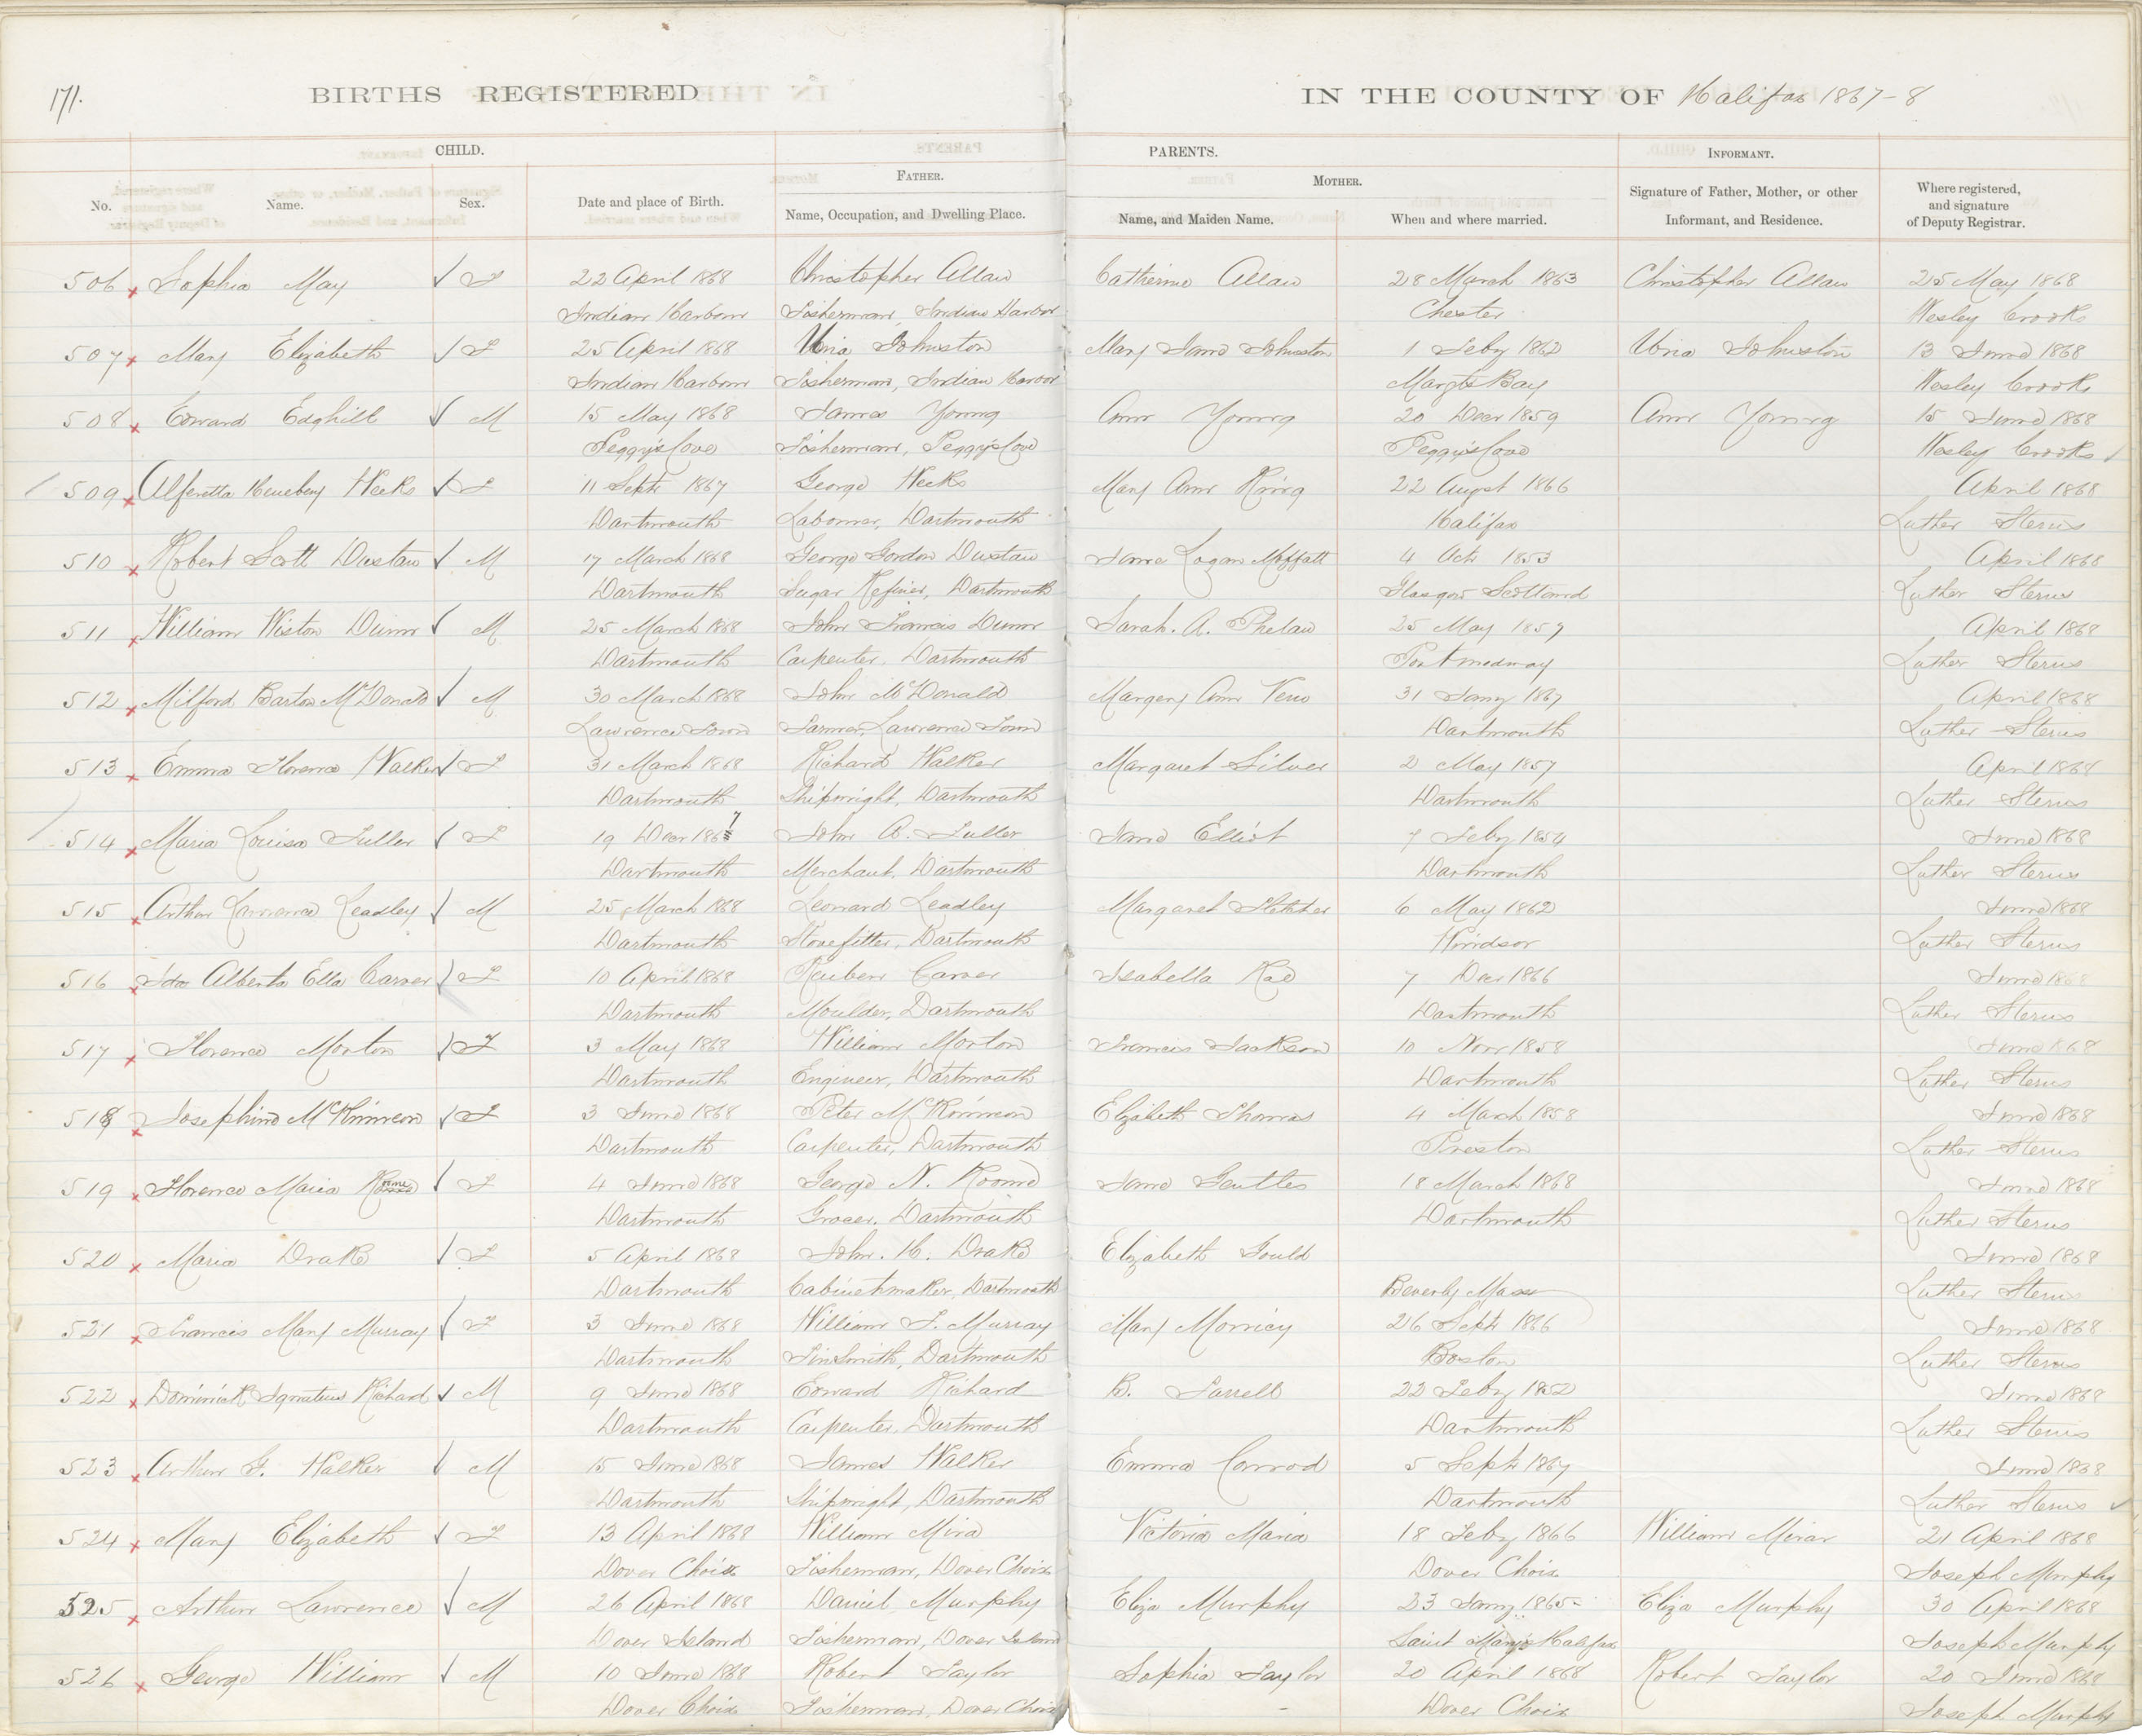 171.
BIRTHS REGISTERED
IN THE COUNTY OF Halifax 1867-8
CHILD.
PARENTS.
INFORMANT.
FATHER.
MOTHER.
No.
Name.
Sex.
Date and place of Birth.
Name, Occupation, and Dwelling Place.
Name, and Maiden Name.
When and where married.
Signature of Father, Mother, or other
Informant, and Residence.
Where registered,
and signature
of Deputy Registrar.
506 Sophia May F 22 April 1868 Christopher Allan Catherine Allan 28 March 1863 Christopher Allan 25 May 1868
Indian Harbour Fisherman, Indian Harbor Chester Wesley Crooks
507 Mary Elizabeth F 25 April 1868 Uria Johnston Mary Jane Johnston 1 Feby 1862 Uria Johnston 13 June 1868
Indian Harbour Fisherman, Indian Harbor Margts Bay Wesley Crooks
508 Edward Edghill M 15 May 1868 James Young Ann Young 20 Decr 1859 Ann Young 15 June 1868
Peggy's Cove Fisherman, Peggy's Cove Peggy's Cove Wesley Crooks
509 Alferetta Weeks F 11 Septr 1867 George Weeks Mary Ann King 22 Augst 1866 April 1868
Dartmouth Labourer, Dartmouth Halifax Luther Sterns
510 Robert Scott Dustan M 17 March 1868 George Gordon Dustan Jane Logan Moffatt 4 Octr 1853 April 1868
Dartmouth Sugar Refiner, Dartmouth Glasgow Scotland Luther Sterns
511 William Wiston Dunn M 25 March 1868 John Francis Dunn Sarah. A. Phelan 25 May 1857 April 1868
Dartmouth Carpenter, Dartmouth Port medway Luther Sterns
512 Milford Barton McDonald M 30 March 1868 John McDonald Margery Ann Veno 31 Jany 1867 April 1868
Lawrence Town Farmer, Lawrence Town Dartmouth Luther Sterns
513 Emma Florence Walker F 31 March 1868 Richard Walker Margaret Silver 2 May 1857 April 1868
Dartmouth Shipwright, Dartmouth Dartmouth Luther Sterns
514 Maria Louisa Fuller F 19 Decr 1867 John A. Fuller Jane Elliot 7 Feby 1854 June 1868
Dartmouth Merchant, Dartmouth Dartmouth Luther Sterns
515 Arthur Lawrence Leadley M 25 March 1868 Leonard Leadley Margaret Fletcher 6 May 1862 June 1868
Dartmouth Stovefitter, Dartmouth Windsor Luther Sterns
516 Ida Alberta Ella Carver F 10 April 1868 Reuben Carver Isabella Rae 7 Decr 1866 June 1868
Dartmouth Moulder, Dartmouth Dartmouth Luther Sterns
517 Florence Morton F 3 May 1868 William Morton Francis Jackson 10 Novr 1858 June 1868
Dartmouth Engineer, Dartmouth Dartmouth Luther Sterns
518 Josephine McKinnon F 3 June 1868 Peter McKinnon Elizabeth Thomas 4 March 1858 June 1868
Dartmouth Carpenter, Dartmouth Preston Luther Sterns
519 Florence Maria Rome F 4 June 1868 George N. Roome Jane Gentles 18 March 1868 June 1868
Dartmouth Grocer. Dartmouth Dartmouth Luther Sterns
520 Maria Drake F 5 April 1868 John. H. Drake Elizabeth Gould June 1868
Dartmouth Cabinetmaker, Dartmouth Beverly Mass Luther Sterns
521 Francis Mary Murray F 3 June 1868 William F. Murray Mary 26 Septr 1866 June 1868
Dartmouth TinSmith, Dartmouth Boston Luther Sterns
522 Dominick Ignatius Richard M 9 June 1868 Edward Richard B. Farrell 22 Feby 1852 June 1868
Dartmouth Carpenter, Dartmouth Dartmouth Luther Sterns
523 Arthur G. Walker M 15 June 1868 James Walker Emma Conrod 5 Septr 1867 June 1868
Dartmouth Shipwright, Dartmouth Dartmouth Luther Sterns
524 Mary Elizabeth F 13 April 1868 William Mira Victoria Maria 18 Feby 1866 William Mirar 21 April 1868
Dover Choix Fisherman, Dover Choix Dover Choix Joseph Murphy
525 Arthur Lawrence M 26 April 1868 Daniel Murphy Eliza Murphy 23 Jany. 1865 Eliza Murphy 30 April 1868
Dover Island Fisherman, Dover Island Saint Mary's Halifax Joseph Murphy
526 George William M 10 June 1868 Robert Taylor Sophia Taylor 20 April 1868 Robert Taylor 20 June 1868
Dover Choix Fisherman, Dover Choix Dover Choix Joseph Murphy